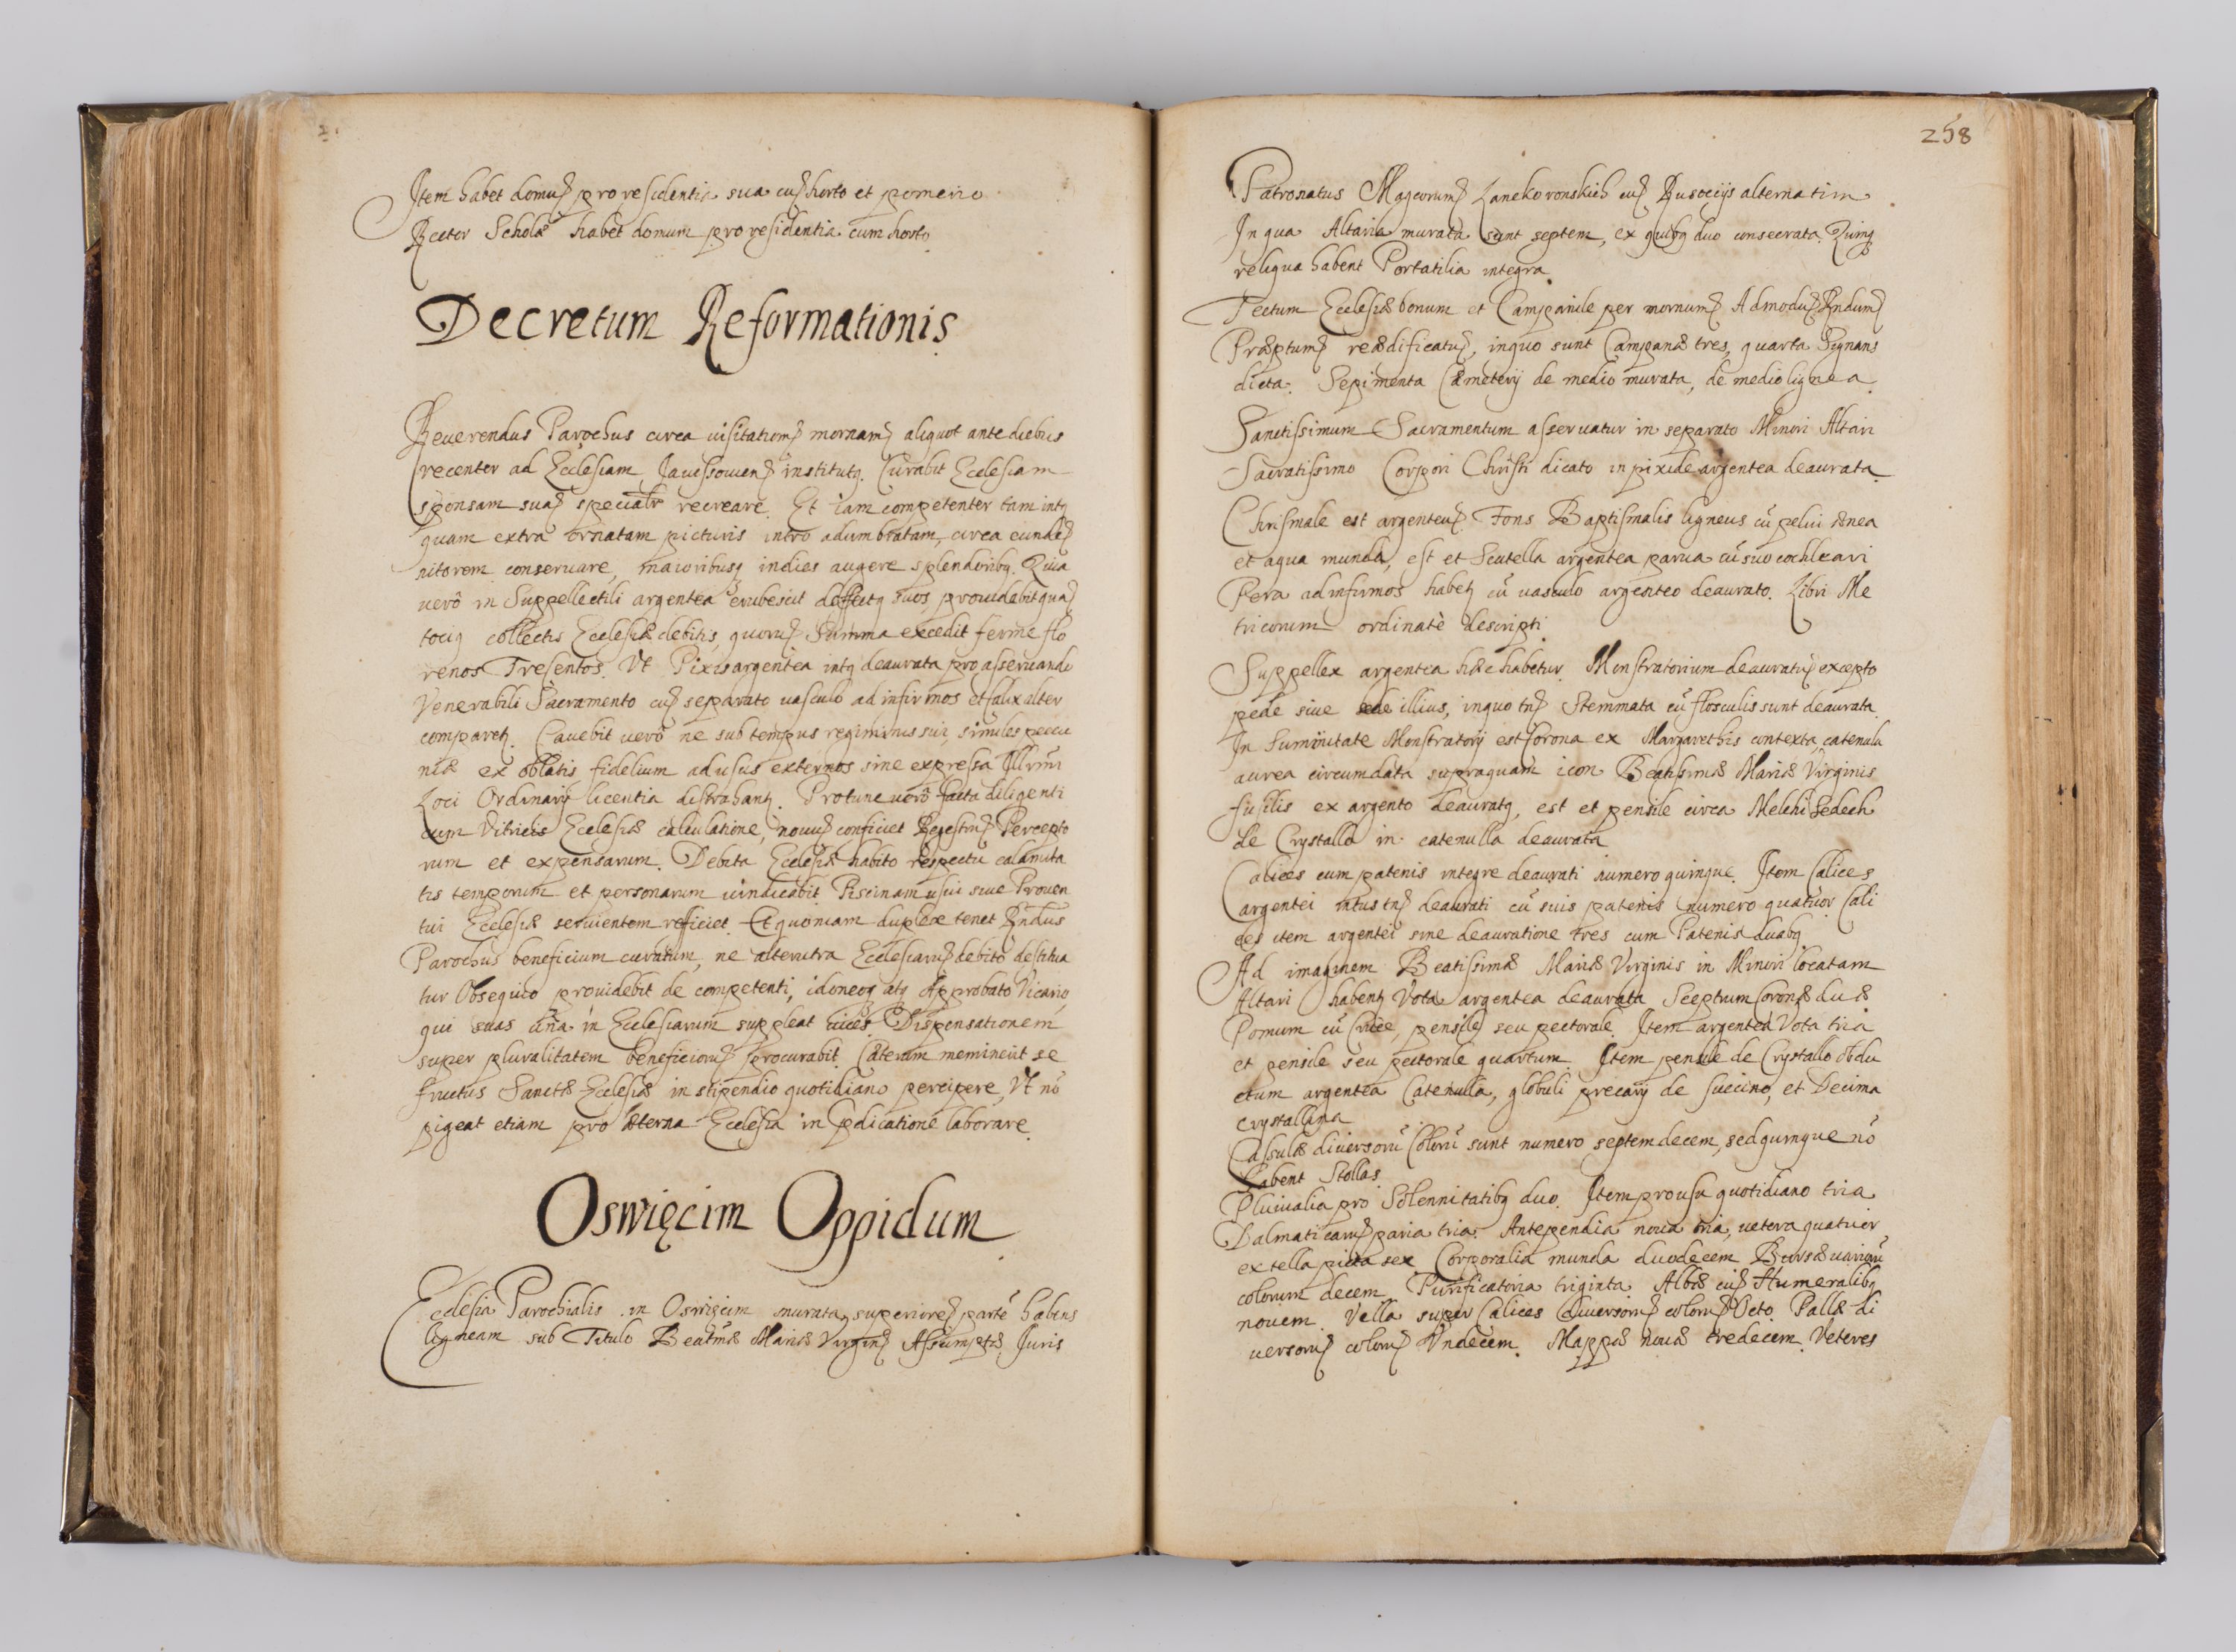 Item habet domū pro residentia sua cū horto et pomerio
Rector Scholæ habet domum pro residentia cum horto.
Decretum Reformationis
Reuerendus Parochus circa uisitationē mornam aliquot ante diebus
recenter ad Ecclesiam institutq. Curabit Ecclesiam
sponsam suā specialr recreare. Et iam competenter tam intq
quam extra ornatam picturis intro adumbratam, circa eundē
nitorem conseruare, maioribusq indies augere splendoribq. Quia
uerò in Suppellectili argentea erubescit deffectq suos, prouidebit quā
tociq collectis Ecclesiæ debitis, quorū Summa excedit fermè flo
renos Tresentos. Vt Pixis argentea intq deaurata pro asseruando
Venerabili Sacramento cū separato uasculo ad infirmos et Calix alter
comparetq. Cauebit uerò ne sub tempus regiminis sui, similes pecu
niæ ex oblatis fidelium ad usus externos sine expressa Illrmi
Loci Ordinarij licentia distrahantq. Pro tunc uerò facta diligenti
cum Vitricis Ecclesiæ calculatione, nouū conficiet Regestrū Percepto
rum et expensarum. Debita Ecclesiæ habito respectu calamita
tis temporum et personarum uindicabit. Piscinam usui siue Prouen
tui Ecclesiæ seruientem reficiet. Et quoniam duplex tenet Rndus
Parochus beneficium curatum, ne alterutra Ecclesiarū debito destitua
tur Obsequio prouidebit de competenti, idoneoq atq Approbato Vicario,
qui suas una in Ecclesiarum suppleat uices Dispensationem
super pluralitatem beneficiorū procurabit. Cæterum meminerit se
fructus Sanctæ Ecclesiæ in stipendio quotidiano percipere, Vt nō
pigeat etiam pro æterna Ecclesia in pdicatione laborare.
Oswięcim Oppidum
Ecclesia Parochialis in Oswięcim murata, superiorē partē habens
ligneam sub Titulo Beatmæ Mariæ Virginis Assumptæ. Juris
258
Patronatus Mageorum Lanckoronskich cū Rusocijs alternatim
In qua Altaria murata sunt septem, ex quibq duo consecrata. Quinq
reliqua habent Portatilia integra.
Tectum Ecclesiæ bonum et Campanile per mornum Admodū Rndum
Præptum reædificatū, in quo sunt Campanæ tres, quarta Signans
dicta. Sepimenta Cæmeterij de medio murata, de medio lignea.
Sanctissimum Sacramentum asseruatur in separato Minori Altari
Sacratissimo Corpori Christi dicato in pixide argentea deaurata.
Chrismale est argenteū. Fons Baptismalis ligneus cū pelui ænea
et aqua munda, est et Scutella argentea parua cū suo cochleari
Pera ad infirmos habetq cū uasculo argenteo deaurato. Libri Me
tricorum ordinatè descripti.
Suppellex argentea hæc habetur. Monstratorium deauratū excepto
pede siue sede illius, in quo tnē Stemmata cū flosculis sunt deaurata
In Sumitate Monstratorij est Corona ex Margarethis contexta, catenula
aurea circumdata supra quam icon Beatissimæ Mariæ Virginis
fusilis ex argento deauratq, est et pensile circa Melchisedech
de Crystallo in catenulla deaurata
Calices cum patenis integre deaurati numero quinque. Item Calices
argentei intus tnē deaurati cū suis patenis numero quatuor Cali
ces item argentei sine deauratione tres cum Patenis duabq.
Ad imaginem Beatissimæ Mariæ Virginis in Minori locatam
Altari habentq Vota argentea deaurata Sceptrum Coronæ duæ
Pomum cū Cruce, pensile seu pectorale. Item argentea Vota tria
et pensile seu pectorale quartum. Item pensile de Crystallo obdu
ctum argentea Catenulla, globuli precarij de succino, et Decima
crystallina
Casulæ diuersorū Colorū sunt numero septemdecem, sed quinque nō
habent Stollas.
Pluuialia pro Solennitatibq duo. Item pro usu quotidiano tria.
Dalmaticarū paria tria. Antependia noua tria, uetera quatuor
ex tella picta sex. Corporalia munda duodecem Bursæ uariorū
colorum decem. Purificatoria triginta. Albæ cū Humeralibq
nouem. Vella super Calices diuersorū colorū Octo. Pallæ di
uersorū colorū Vndecem. Mappæ nouæ tredecem. Veteres